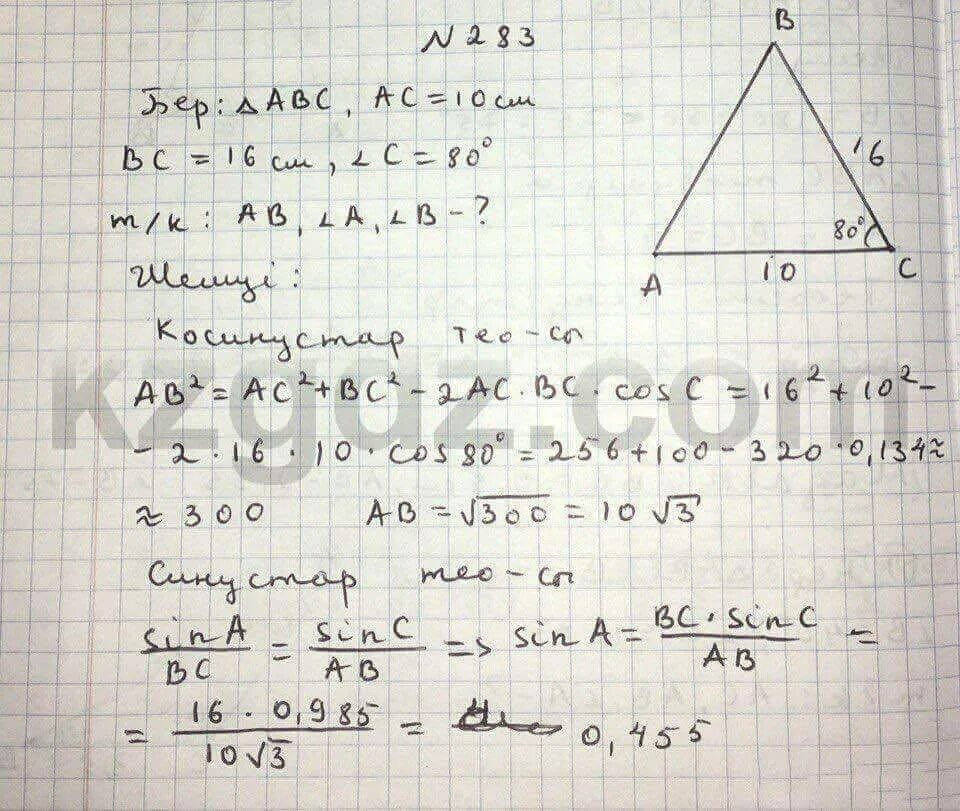 N 283
Бер: △ABC, AC = 10 см
BC = 16 см, ∠C = 80°
т/к: AB, ∠A, ∠B - ?
Шешуі:
Косинустар тео-сы
AB² = AC² + BC² - 2AC · BC · cos C = 16² + 10² -
- 2 · 16 · 10 · cos 80° = 256 + 100 - 320 · 0,134 ≈
≈ 300 AB = √300 = 10√3
Синустар тео-сы
sin A / BC = sin C / AB => sin A = BC · sin C / AB =
= 16 · 0,985 / 10√3 = 0,455
B
16
80°
A
10
C
kzgdz.com